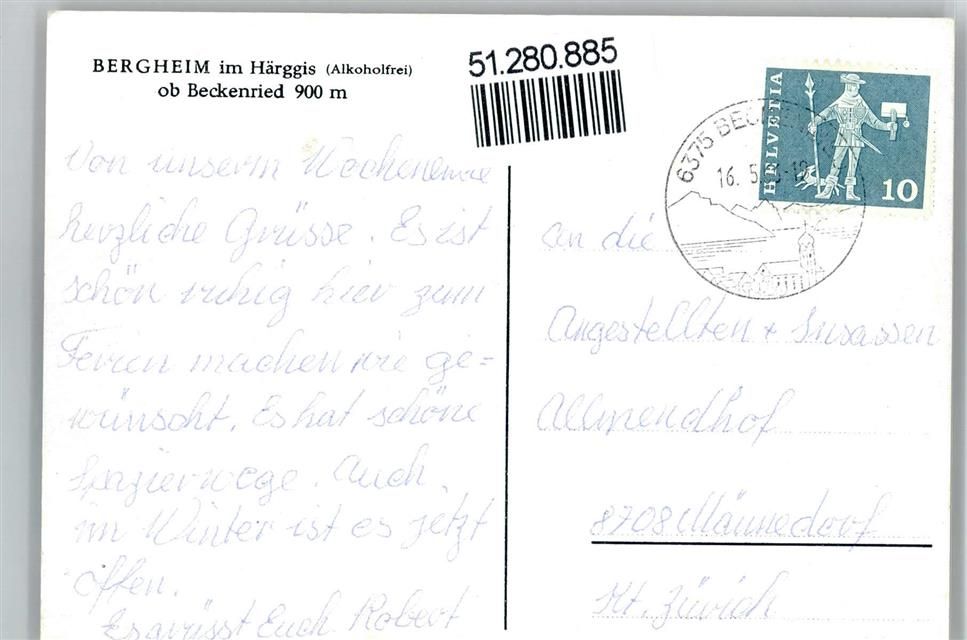 BERGHEIM im Härggis (Alkoholfrei)
ob Beckenried 900 m
51.280.885
HELVETIA
10
6375 BEC
16. 5. -12
Von unserm Wochenende
herzliche Grüsse. Es ist
schön ruhig hier zum
Ferien machen wie ge=
wünscht. Es hat schöne
Spazierwege. Auch
im Winter ist es jetzt
offen.
Es grüsst Euch Robert
An die
Angestellten + Insassen
Allmendhof
8708 Männedorf
Kt. Zürich